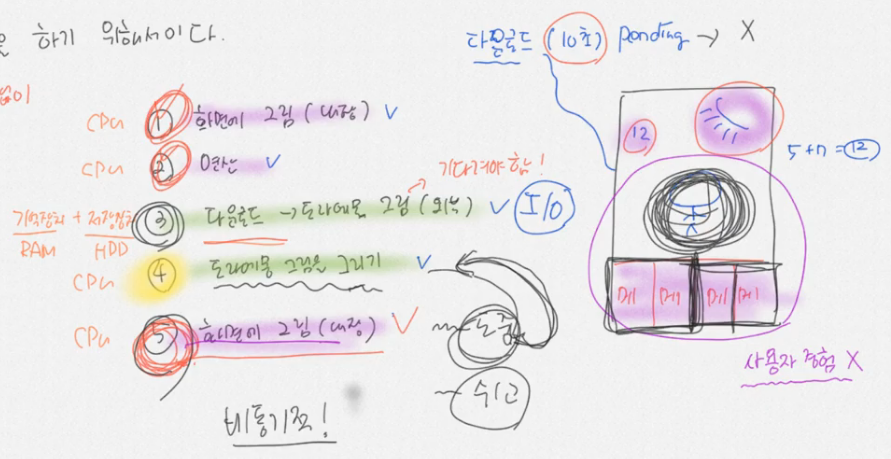 을 하기 위해서이다.
다운로드 (10초) Pending → X
없이
CPU ① 화면에 그림 (내장) ✓
CPU ② 연산 ✓
기다려야함!
기억장치 + 저장장치 ③ 다운로드 → 도라에몽 그림 (외부) ✓ I/O
RAM HDD
CPU ④ 도라에몽 그림을 그리기 ✓
CPU ⑤ 화면에 그림 (내장) ✓
수신
비동기적!
12
5 + 7 = 12
메뉴 메뉴 메뉴 메뉴
사용자 경험 X